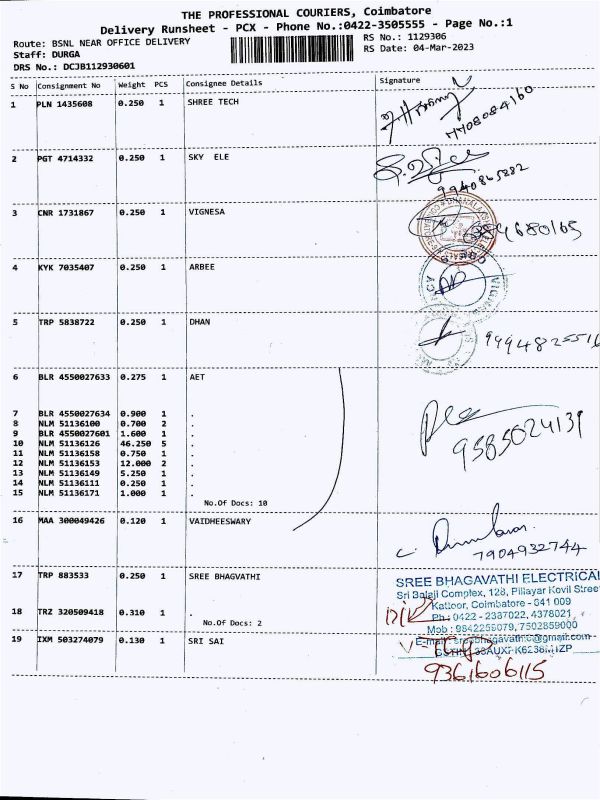 THE PROFESSIONAL COURIERS, Coimbatore
Delivery Runsheet - PCX - Phone No.:0422-3505555 - Page No.:1
Route: BSNL NEAR OFFICE DELIVERY RS No.: 1129306
Staff: DURGA RS Date: 04-Mar-2023
DRS No.: DCJB112930601
S No Consignment No Weight PCS Consignee Details Signature
1 PLN 1435608 0.250 1 SHREE TECH
2 PGT 4714332 0.250 1 SKY ELE
9940865882
3 CNR 1731867 0.250 1 VIGNESA
4 KYK 7035407 0.250 1 ARBEE
5 TRP 5838722 0.250 1 DHAN
9994825516
6 BLR 4550027633 0.275 1 AET
7 BLR 4550027634 0.900 1 .
8 NLM 51136100 0.700 2 .
9 BLR 4550027601 1.600 1 .
10 NLM 51136126 46.250 5 .
11 NLM 51136158 0.750 1 .
12 NLM 51136153 12.000 2 .
13 NLM 51136149 5.250 1 .
14 NLM 51136111 0.250 1 .
15 NLM 51136171 1.000 1 .
9585024131
No.Of Docs: 10
16 MAA 300049426 0.120 1 VAIDHEESWARY
7904932744
17 TRP 883533 0.250 1 SREE BHAGVATHI
SREE BHAGAVATHI ELECTRICAL
Sri Balaji Complex, 128, Pillayar Kovil Street
Kattoor, Coimbatore - 641 009
18 TRZ 320509418 0.310 1 .
No.Of Docs: 2
Ph : 0422 - 2387022, 4378021
Mob : 9842256079, 7502859000
19 IXM 503274079 0.130 1 SRI SAI
9361606115